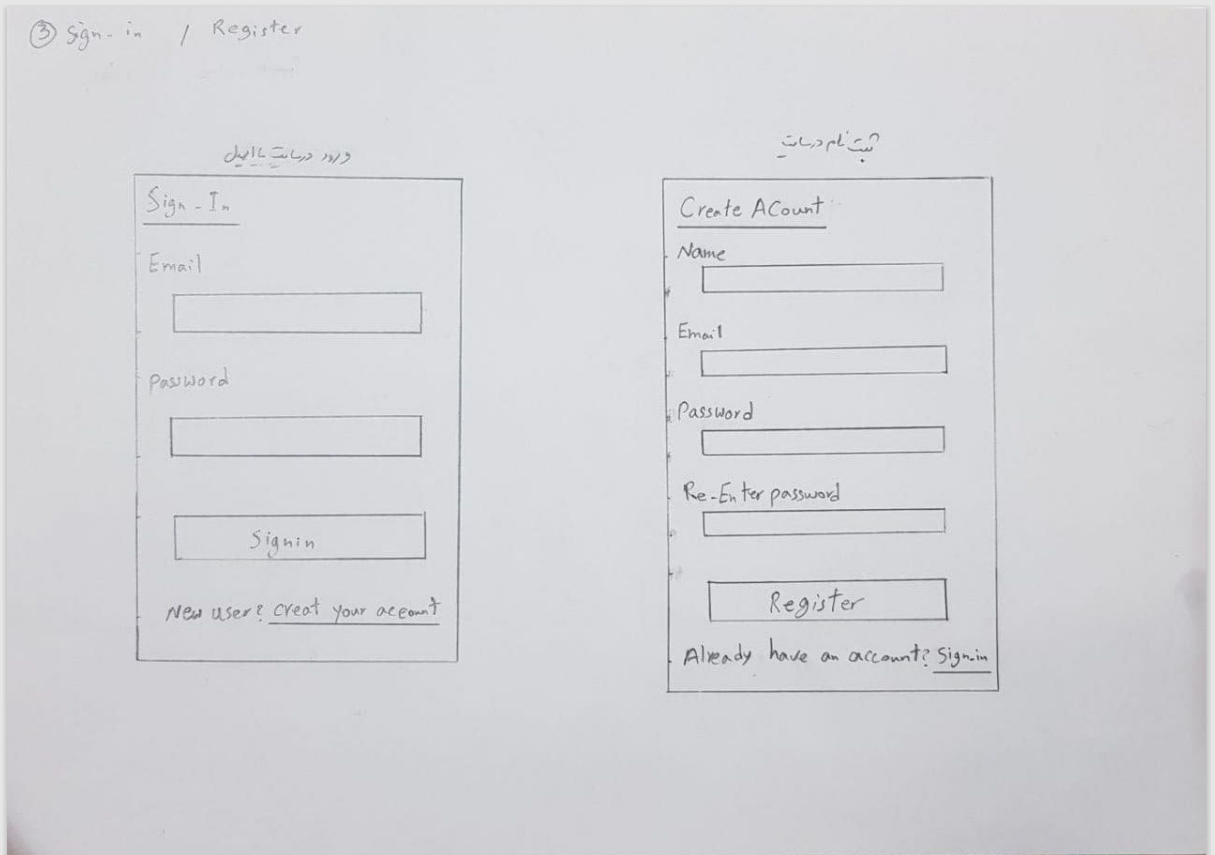 ③ Sign-in / Register
ورود در سایت با ایمیل
Sign-In
Email
Password
Signin
New user? Creat your account
ثبت نام در سایت
Create ACount
Name
Email
Password
Re-Enter password
Register
Already have an account? Sign-in